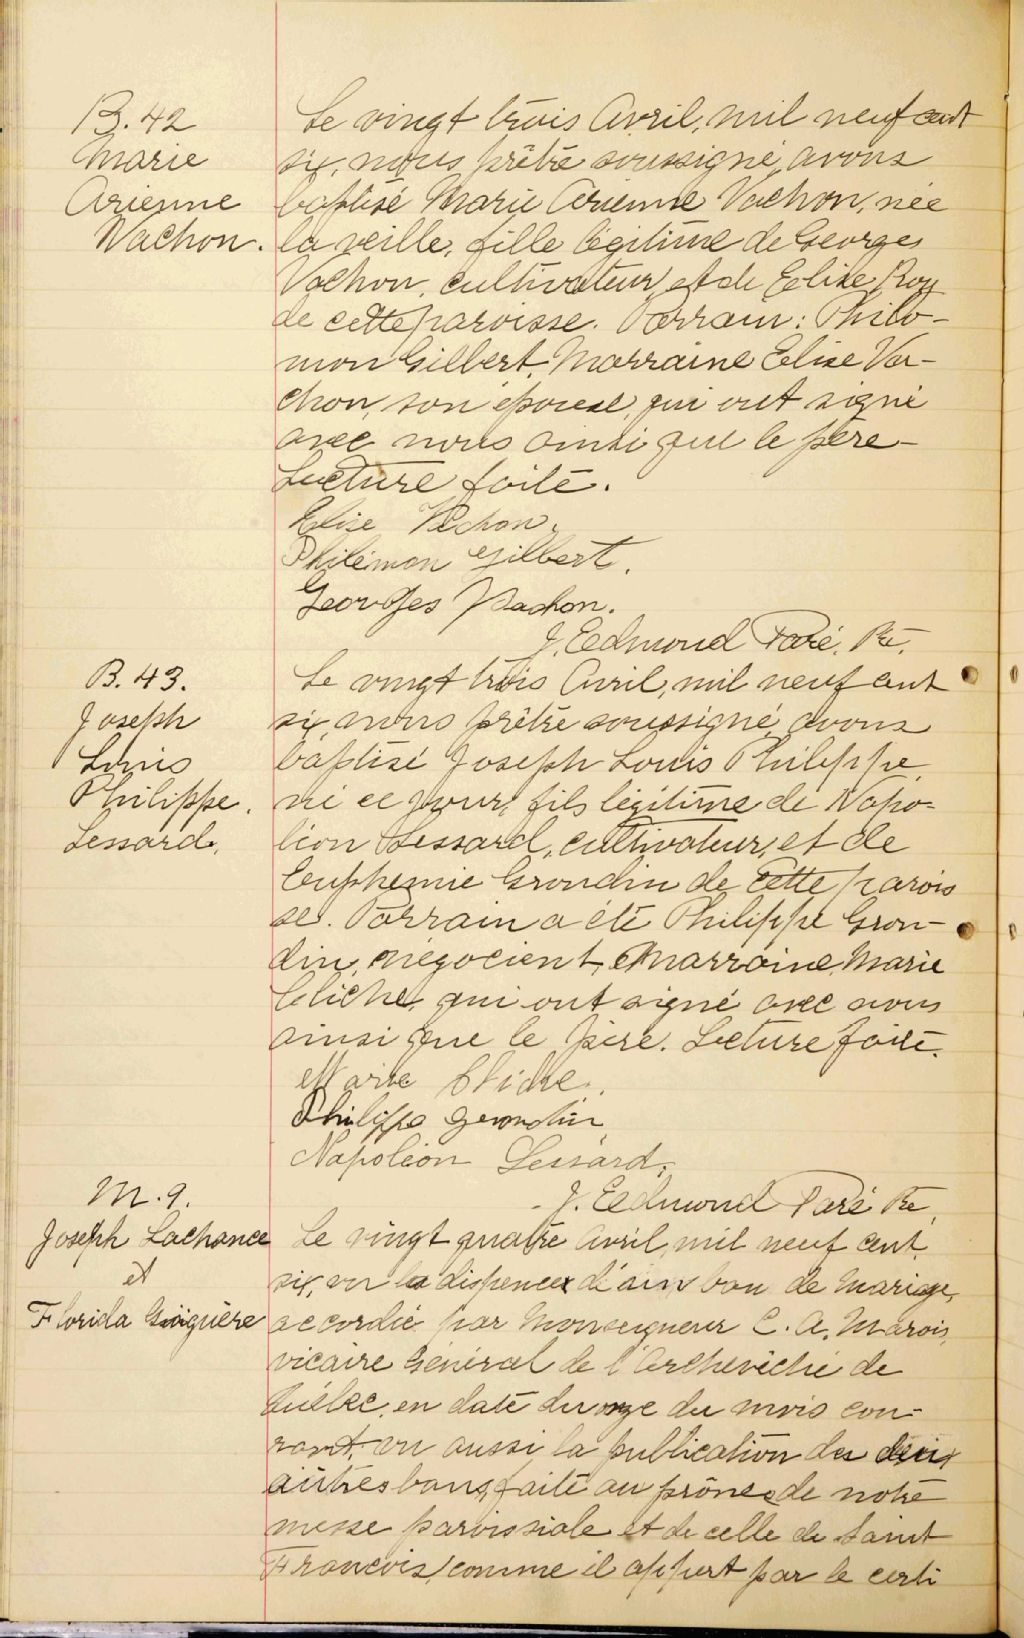 B. 42
Marie
Arienne
Vachon.
Le vingt trois Avril, mil neuf cent
six, nous prêtre soussigné, avons
baptisé Marie Arienne Vachon, née
la veille, fille légitime de Georges
Vachon, cultivateur, et de Elise Roy
de cette paroisse. Parrain: Philo-
mon Gilbert, Marraine Elise Va-
chon, son épouse, qui ont signé
avec nous ainsi que le père-
Lecture faite.
Elise Vachon.
Philémon Gilbert.
Georges Vachon.
J. Edmond Paré, Ptre.
B. 43.
Joseph
Louis
Philippe.
Lessard.
Le vingt trois Avril, mil neuf cent
six, nous prêtre soussigné, avons
baptisé Joseph Louis Philippe
né ce jour, fils légitime de Napo-
léon Lessard, cultivateur, et de
Euphémie Grondin de cette parois
se. Parrain a été Philippe Gron-
din, négociant, Marraine, Marie
Cliche, qui ont signé avec nous
ainsi que le père. Lecture faite.
Marie Cliche.
Philippe Grondin
Napoléon Lessard.
J. Edmond Paré Ptre
M. 9.
Joseph Lachance
et
Florida Giguère
Le vingt quatre Avril, mil neuf cent
six, vu la dispence d'un ban de Mariage,
accordée par Monseigneur C. A. Marois,
vicaire Général de l'Archevêché de
Québec, en date du onze du mois cou-
rant, vu aussi la publication des deux
autres bans, faite au prône de notre
messe paroissiale et de celle de Saint
François, comme il appert par le certi